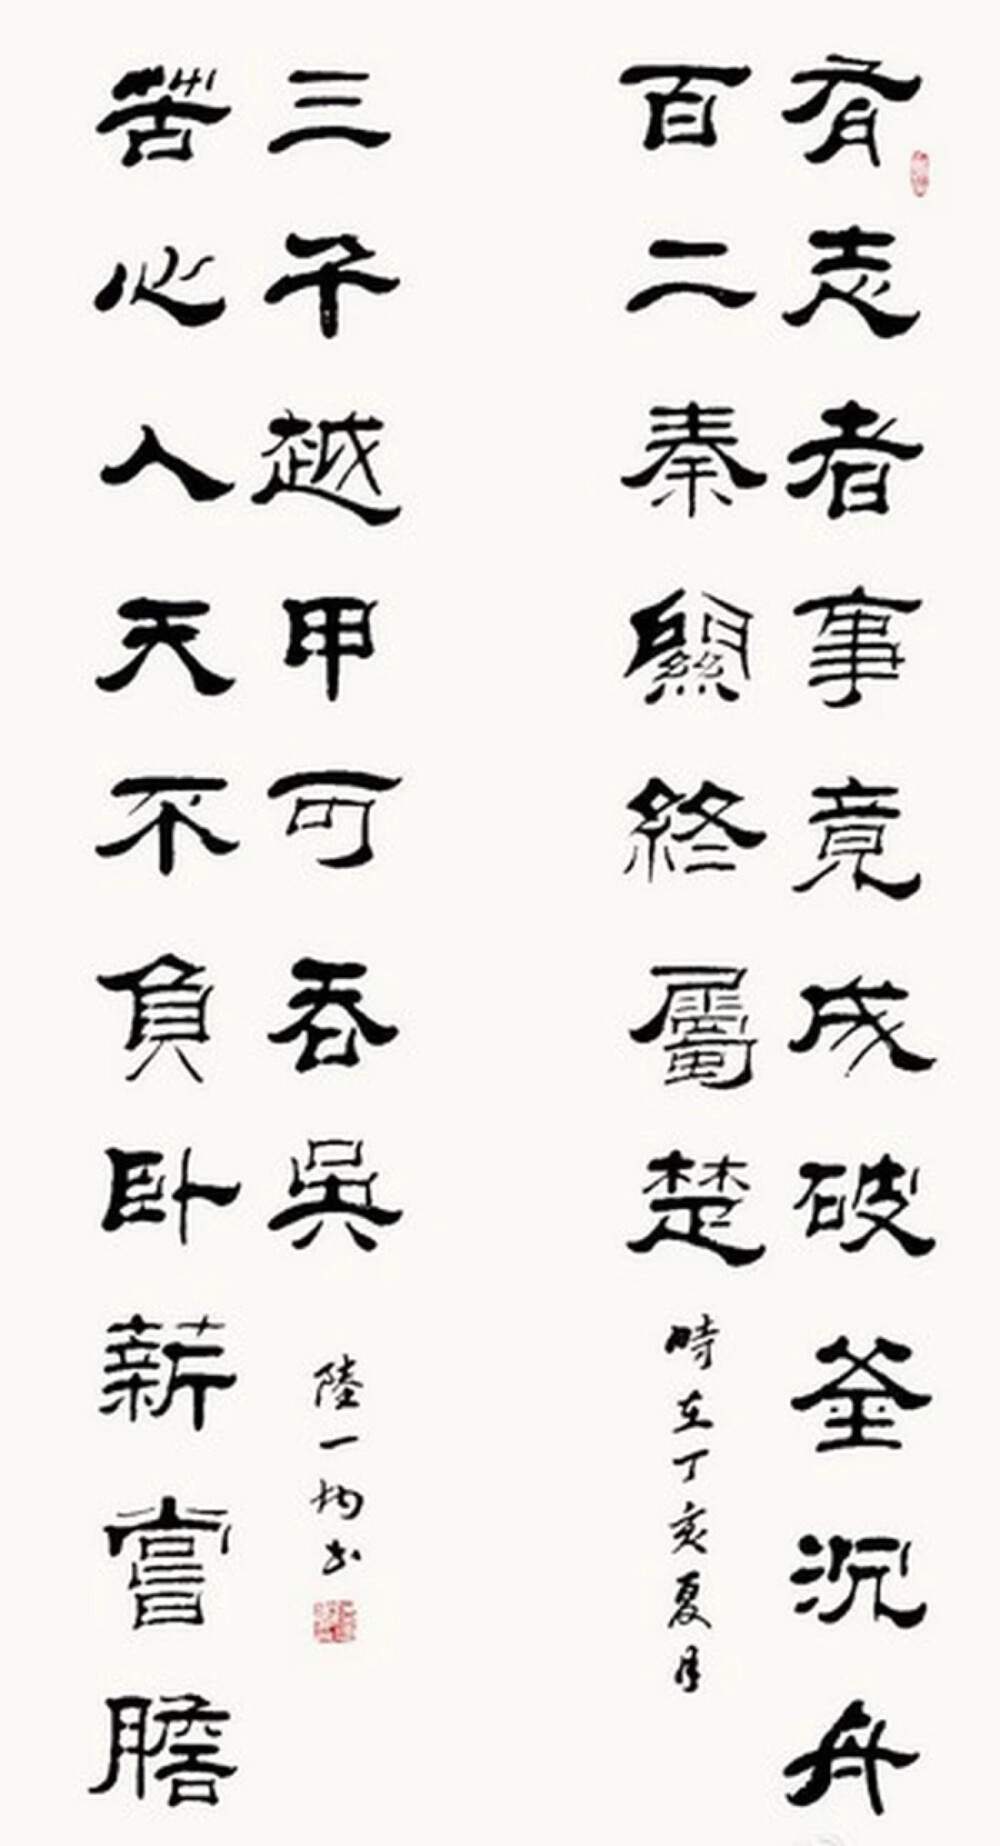 有志者事竟成破釜沉舟
百二秦關終屬楚
時在丁亥夏月
苦心人天不負卧薪嘗膽
三千越甲可吞吳
陸一均书